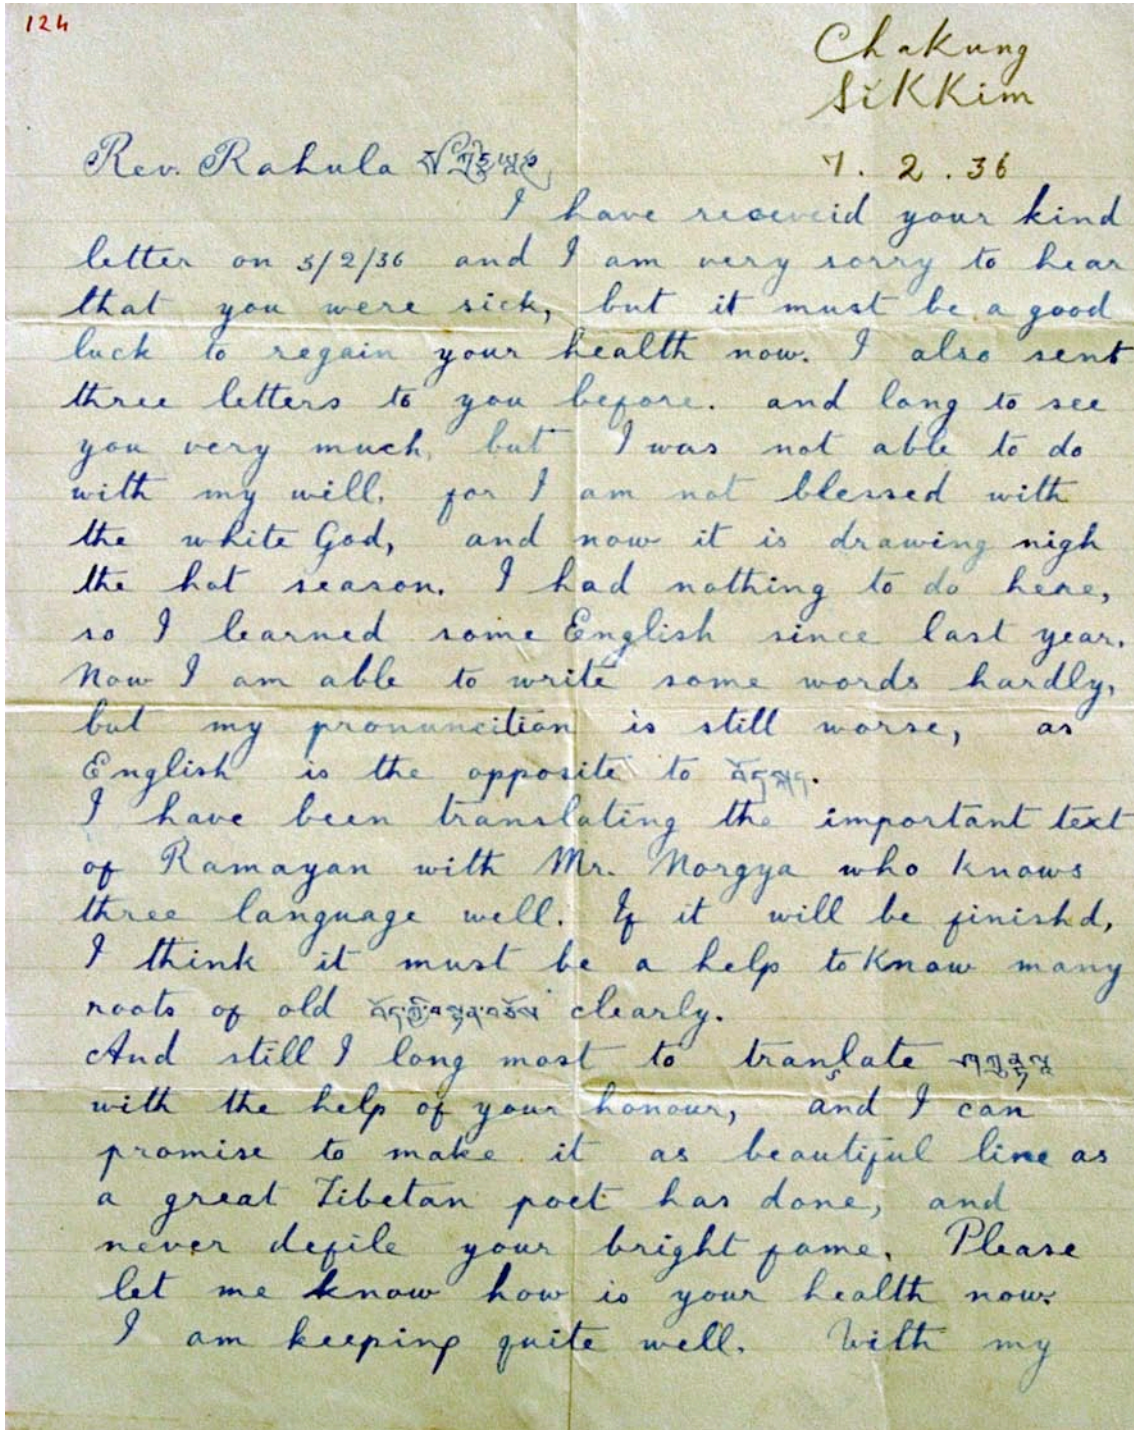 124
Chakung
Sikkim
Rev. Rahula
7. 2. 36
I have receveid your kind
letter on 5/2/36 and I am very sorry to hear
that you were sick, but it must be a good
luck to regain your health now. I also sent
three letters to you before. and long to see
you very much, but I was not able to do
with my will, for I am not blessed with
the white God, and now it is drawing nigh
the hot season. I had nothing to do here,
so I learned some English since last year.
Now I am able to write some words hardly,
but my pronuncition is still worse, as
English is the opposite to བོད་སྐད.
I have been translating the important text
of Ramayan with Mr. Norgya who knows
three language well. If it will be finishd,
I think it must be a help to know many
roots of old བོད་ཀྱི་བསྟན་བཅོས clearly.
And still I long most to translate
with the help of your honour, and I can
promise to make it as beautiful line as
a great Tibetan poet has done, and
never defile your bright fame. Please
let me know how is your health now.
I am keeping quite well. With my